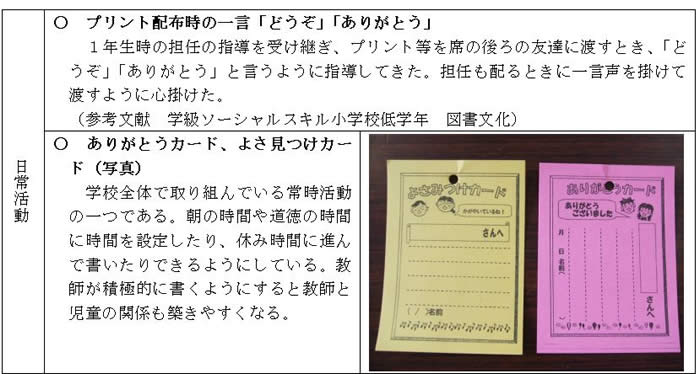 日常活動
○ プリント配布時の一言「どうぞ」「ありがとう」
１年生時の担任の指導を受け継ぎ、プリント等を席の後ろの友達に渡すとき、「ど
うぞ」「ありがとう」と言うように指導してきた。担任も配るときに一言声を掛けて
渡すように心掛けた。
（参考文献　学級ソーシャルスキル小学校低学年　図書文化）
○ ありがとうカード、よさ見つけカー
ド（写真）
学校全体で取り組んでいる常時活動
の一つである。朝の時間や道徳の時間
に時間を設定したり、休み時間に進ん
で書いたりできるようにしている。教
師が積極的に書くようにすると教師と
児童の関係も築きやすくなる。
よさみつけカード
かがやいているね！
さんへ
( / )名前
ありがとうカード
ありがとう
ございました
さんへ
月　日　名前